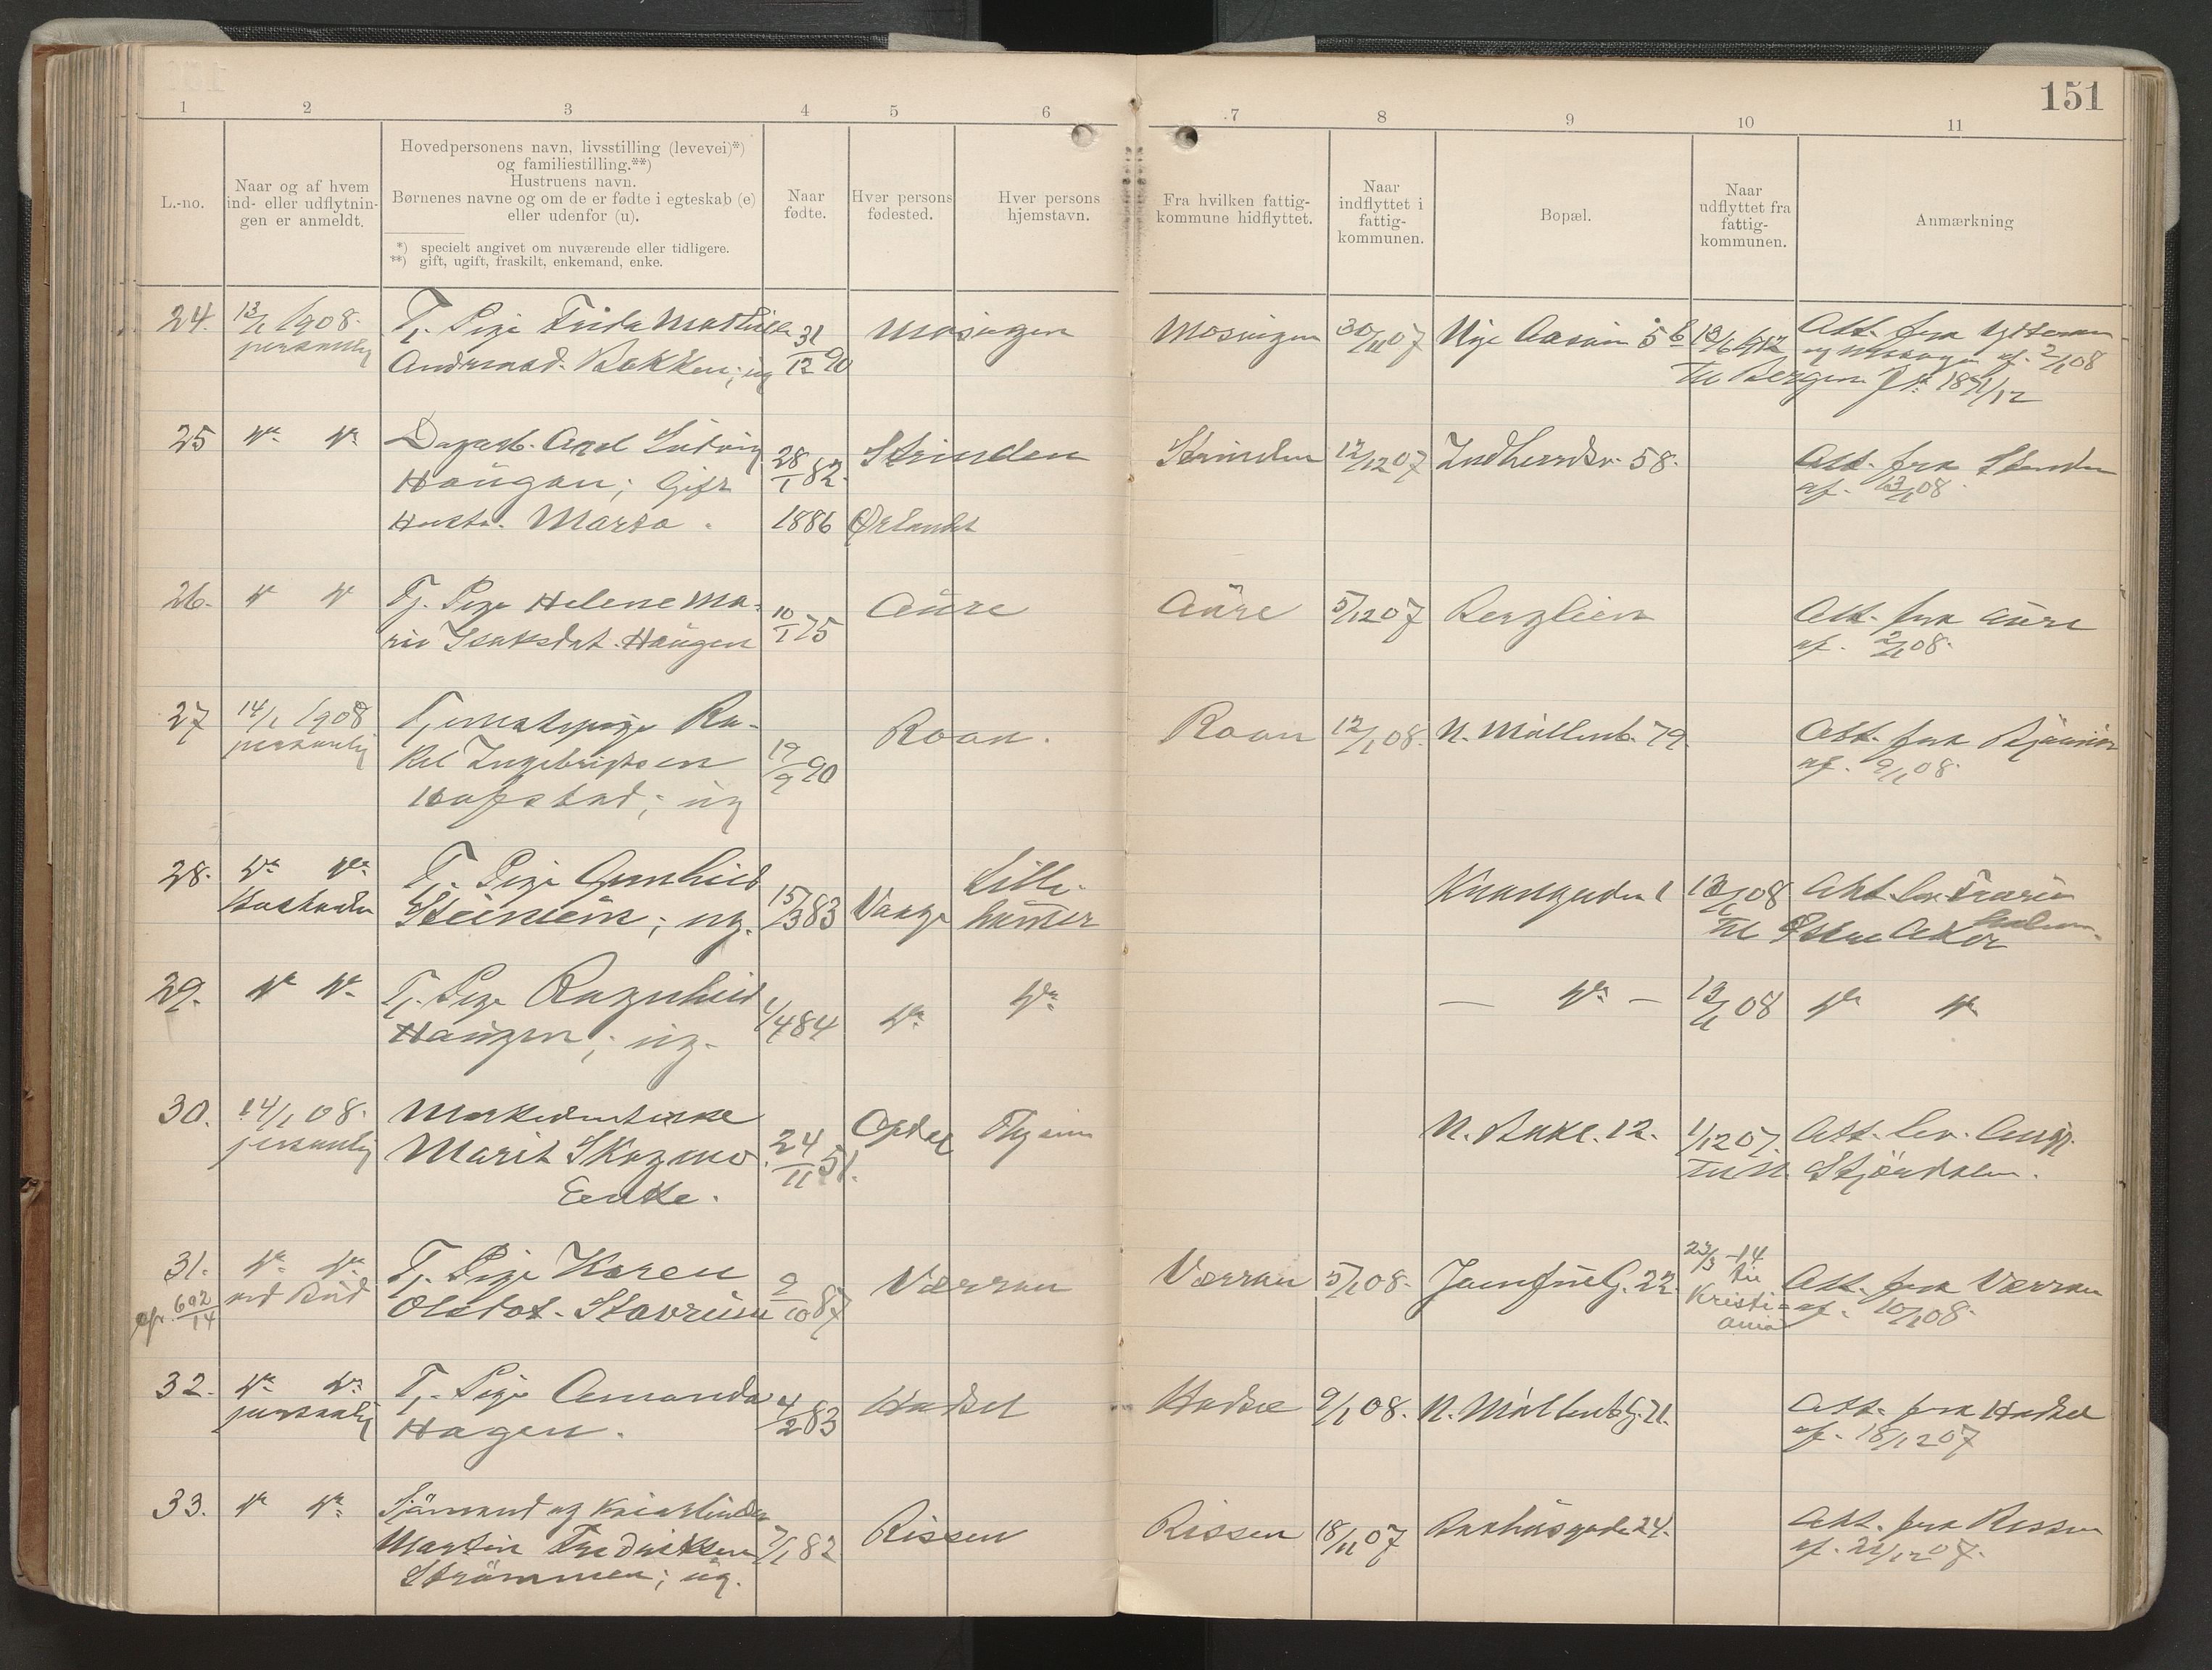 151
1 2 3 4 5 6 7 8 9 10 11
L.-no.
Naar og af hvem
ind- eller udflytnin-
gen er anmeldt.
Hovedpersonens navn, livsstilling (levevei)*)
og familiestilling.**)
Hustruens navn.
Børnenes navne og om de er fødte i egteskab (e)
eller udenfor (u).
*) specielt angivet om nuværende eller tidligere.
**) gift, ugift, fraskilt, enkemand, enke.
Naar
fødte.
Hver persons
fødested.
Hver persons
hjemstavn.
Fra hvilken fattig-
kommune hidflyttet.
Naar
indflyttet i
fattig-
kommunen.
Bopæl.
Naar
udflyttet fra
fattig-
kommunen.
Anmærkning
24. 13/1 1908. personlig
Tj. Pige Frida Mathilde
Andrineds. Bakken; ug
31/12 90
Mosvigen
Mosvigen 30/11 07
13/6 1912
Att. fra Ytterøen
og Mosvigen af. 2/1 08
Til Bergen
25 Do. Do.
Dagarb. Axel Ludvig
Haugan; Gift
Hustr. Marta.
28/1 82.
1886
Strinden
Ørlandet
Strinden 12/12 07 Indherredsv. 58.
Att. fra Strinden
af. 13/1 08.
26. Do Do
Tj. Pige Helene Ma-
rie Isaksdat. Haugen
10/1 75
Aure
Aure 5/12 07 Berglien
Att. fra Aure
af. 2/1 08.
27 14/1 1908 personlig
Tjenestepige Ra-
kel Ingebrigtsen
Hopstad; ug
19/9 90
Roan.
Roan 12/1 08. N. Møllenb. 79.
Att. fra
af. 9/1 08.
28. Do. Do.
T. Pige Gunhild
; ug.
15/3 83
Vaage
Lille-
hamer
13/1 08
Til Østre Aker
29. Do Do.
Tj. Pige Ragnhild
Haugen; ug.
1/4 84
Do.
Do.
— Do. —
13/1 08 Do Do
30. 14/1 08. personlig
Marit Skogmo
Enke.
24/11 51.
Opdal
N. Bakl. 12.
1/12 07.
Til N. Stjørdalen.
31. Do. Do.
ved Bud
cfr. 692/14
Tj. Pige Karen
Olsdat. Stavrum
9/10 87
Værran
Værran 5/1 08. Jomfrug. 22.
23/3 -14
til
Kristi-
ania
Att. fra Værran
af. 10/1 08.
32. Do. Do.
personlig
Tj. Pige Amanda
Hagen.
4/2 83
Hadsel
Hadsel 9/1 08. N. Møllenbg. 71.
Att. fra Hadsel
af. 18/12 07
33. Do Do.
Sjømand og
Martin Fredriksen
Strømmen; ug.
7/1 82
Rissen
Rissen 18/11 07 24.
Att. fra Rissen
af. 21/12 07.